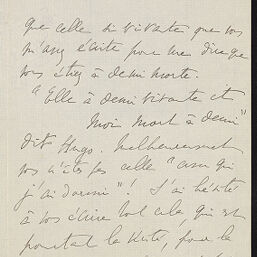 que celle si vivante que vous
m'avez écrite pour me dire que
vous étiez à demi morte.
"Elle à demi vivante et
Moi mort à demi"
dit Hugo. Malheureusement
vous n'êtes pas celle "avec qui
j'ai dormi"! J'ai hésité
à vous écrire tout cela, qui est
pourtant la vérité, pour la